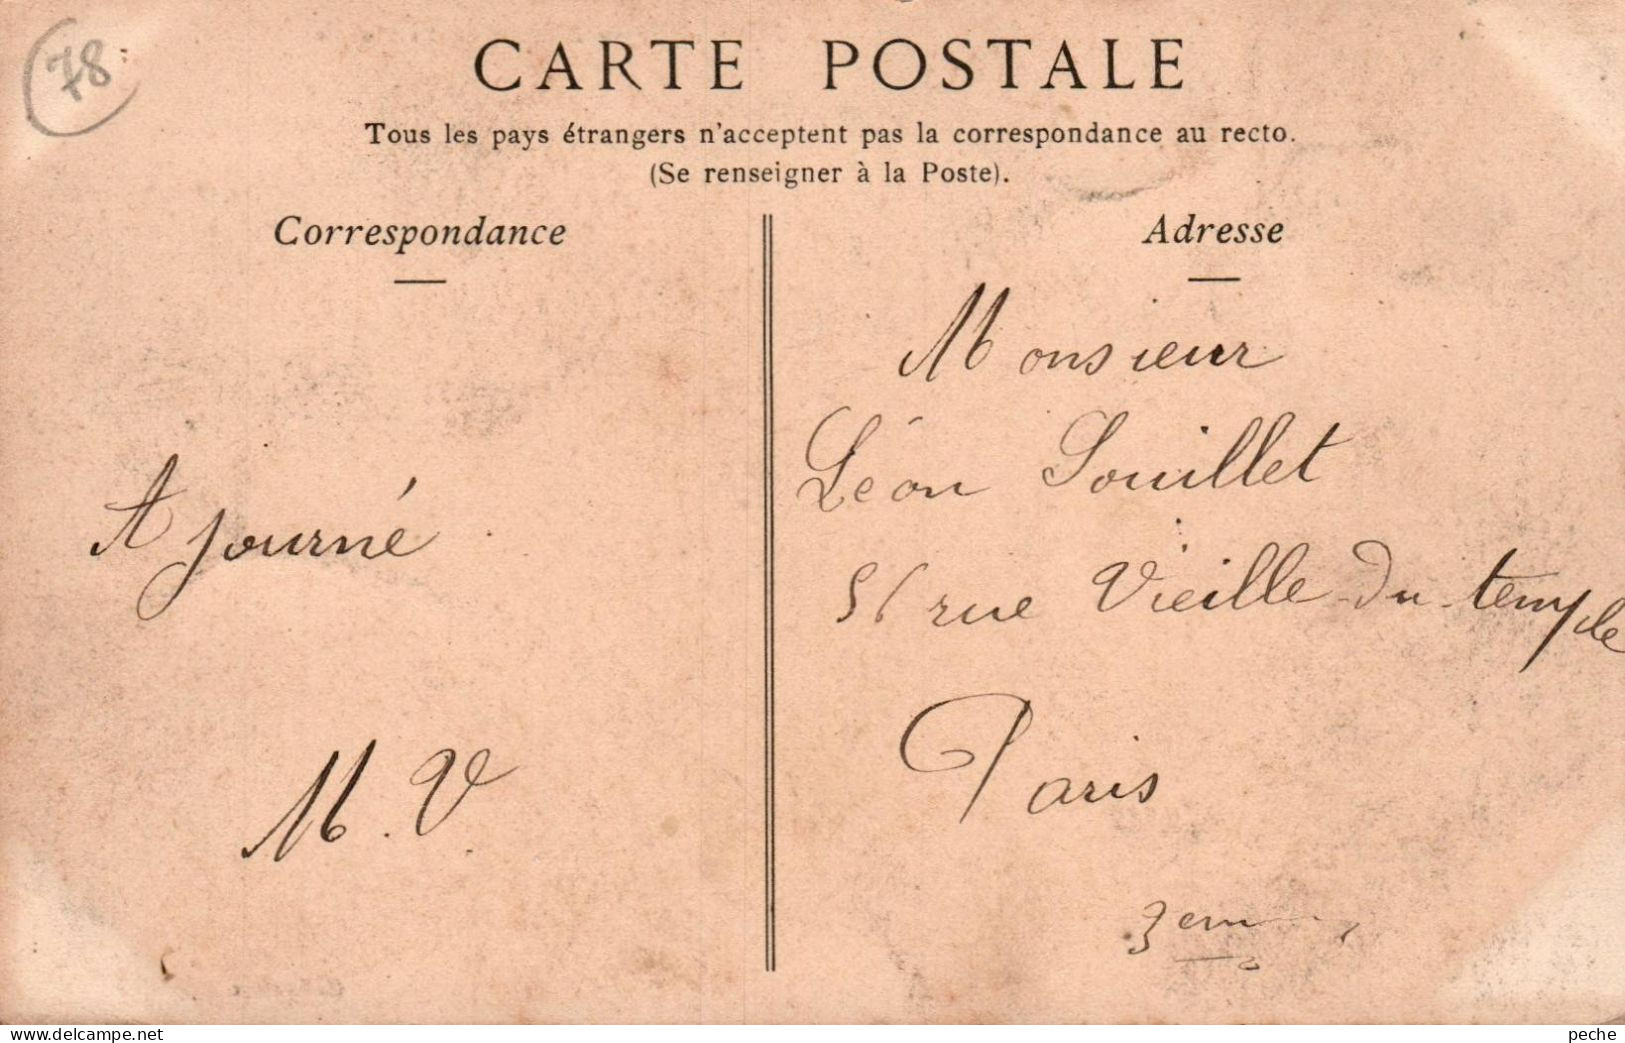 78
CARTE POSTALE
Tous les pays étrangers n'acceptent pas la correspondance au recto.
(Se renseigner à la Poste).
Correspondance
Ajourné
M. V
Adresse
Monsieur
Léon Souillet
56 rue Vieille du temple
Paris
3em
www.delcampe.net
peche